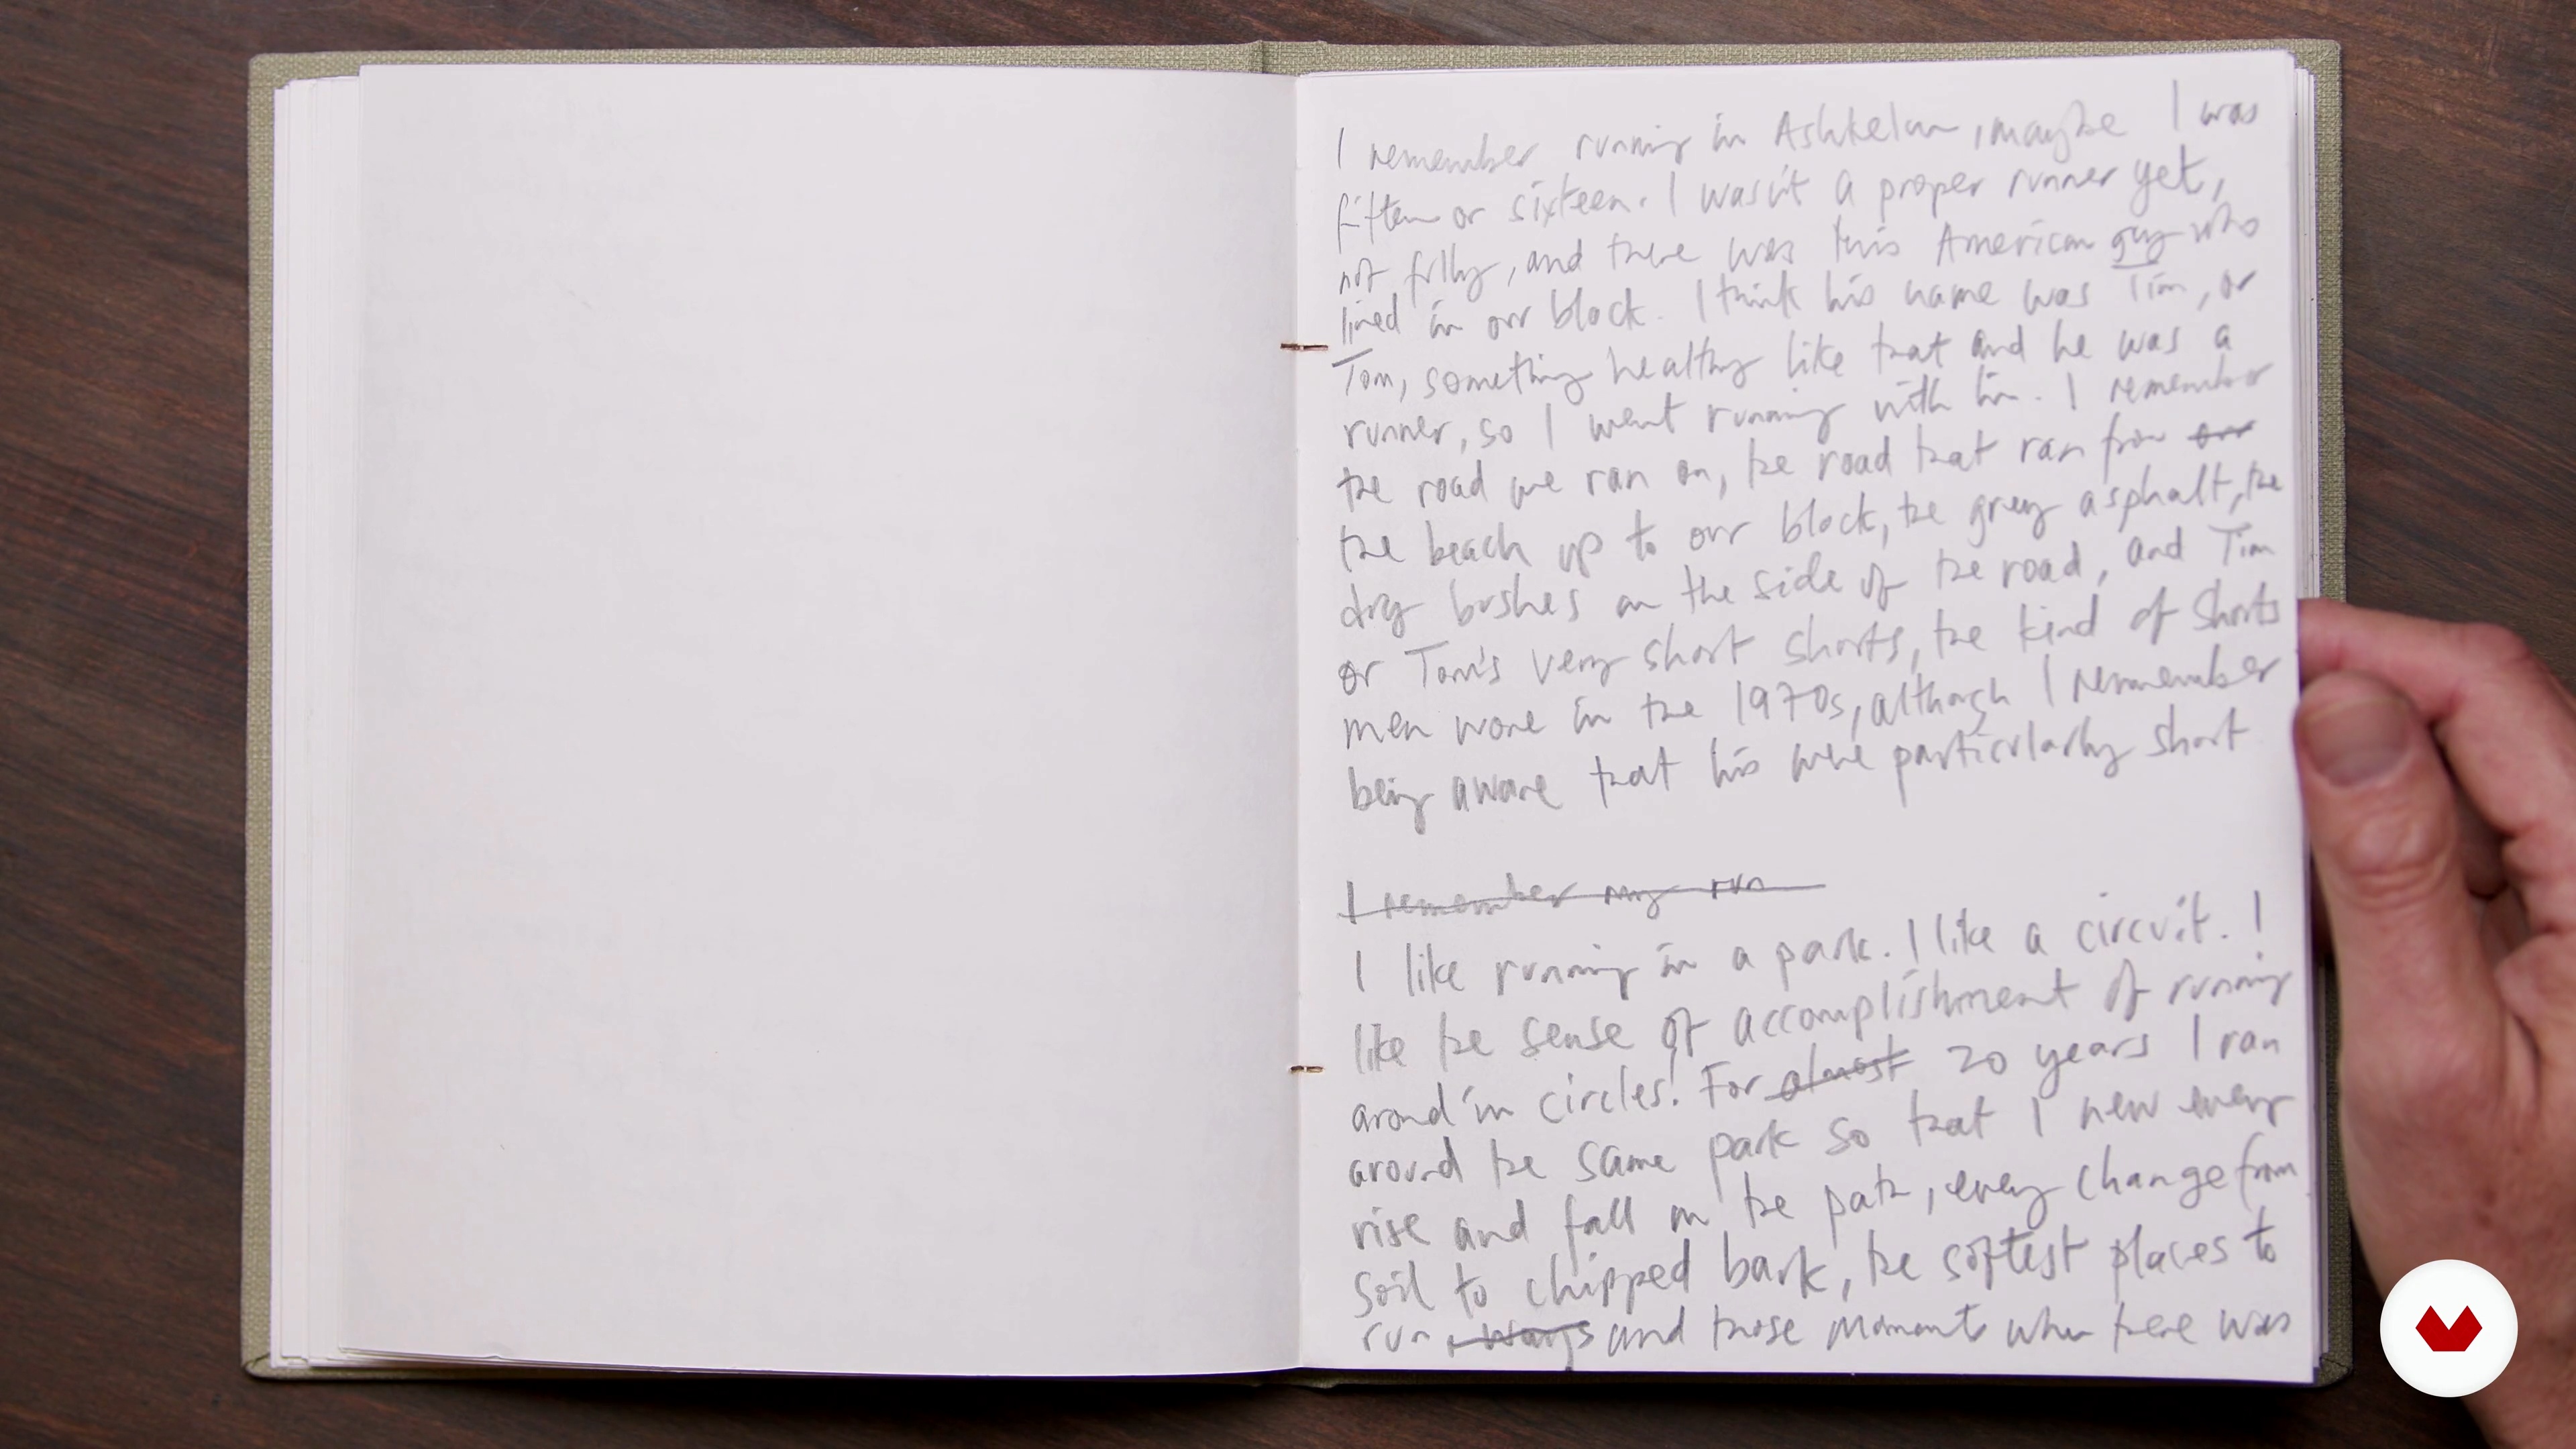 I remember running in Ashkelon, maybe I was
fifteen or sixteen. I wasn't a proper runner yet,
not fully, and there was this American guy who
lived in our block. I think his name was Tim, or
Tom, something healthy like that and he was a
runner, so I went running with him. I remember
the road we ran on, the road that ran from our
the beach up to our block, the grey asphalt, the
dry bushes on the side of the road, and Tim
or Tom's very short shorts, the kind of shorts
men wore in the 1970s, although I remember
being aware that his were particularly short
I remember my run
I like running in a park. I like a circuit. I
like the sense of accomplishment of running
around in circles! For almost 20 years I ran
around the same park so that I new every
rise and fall on the path, every change from
soil to chipped bark, the softest places to
run always and those moments when there was